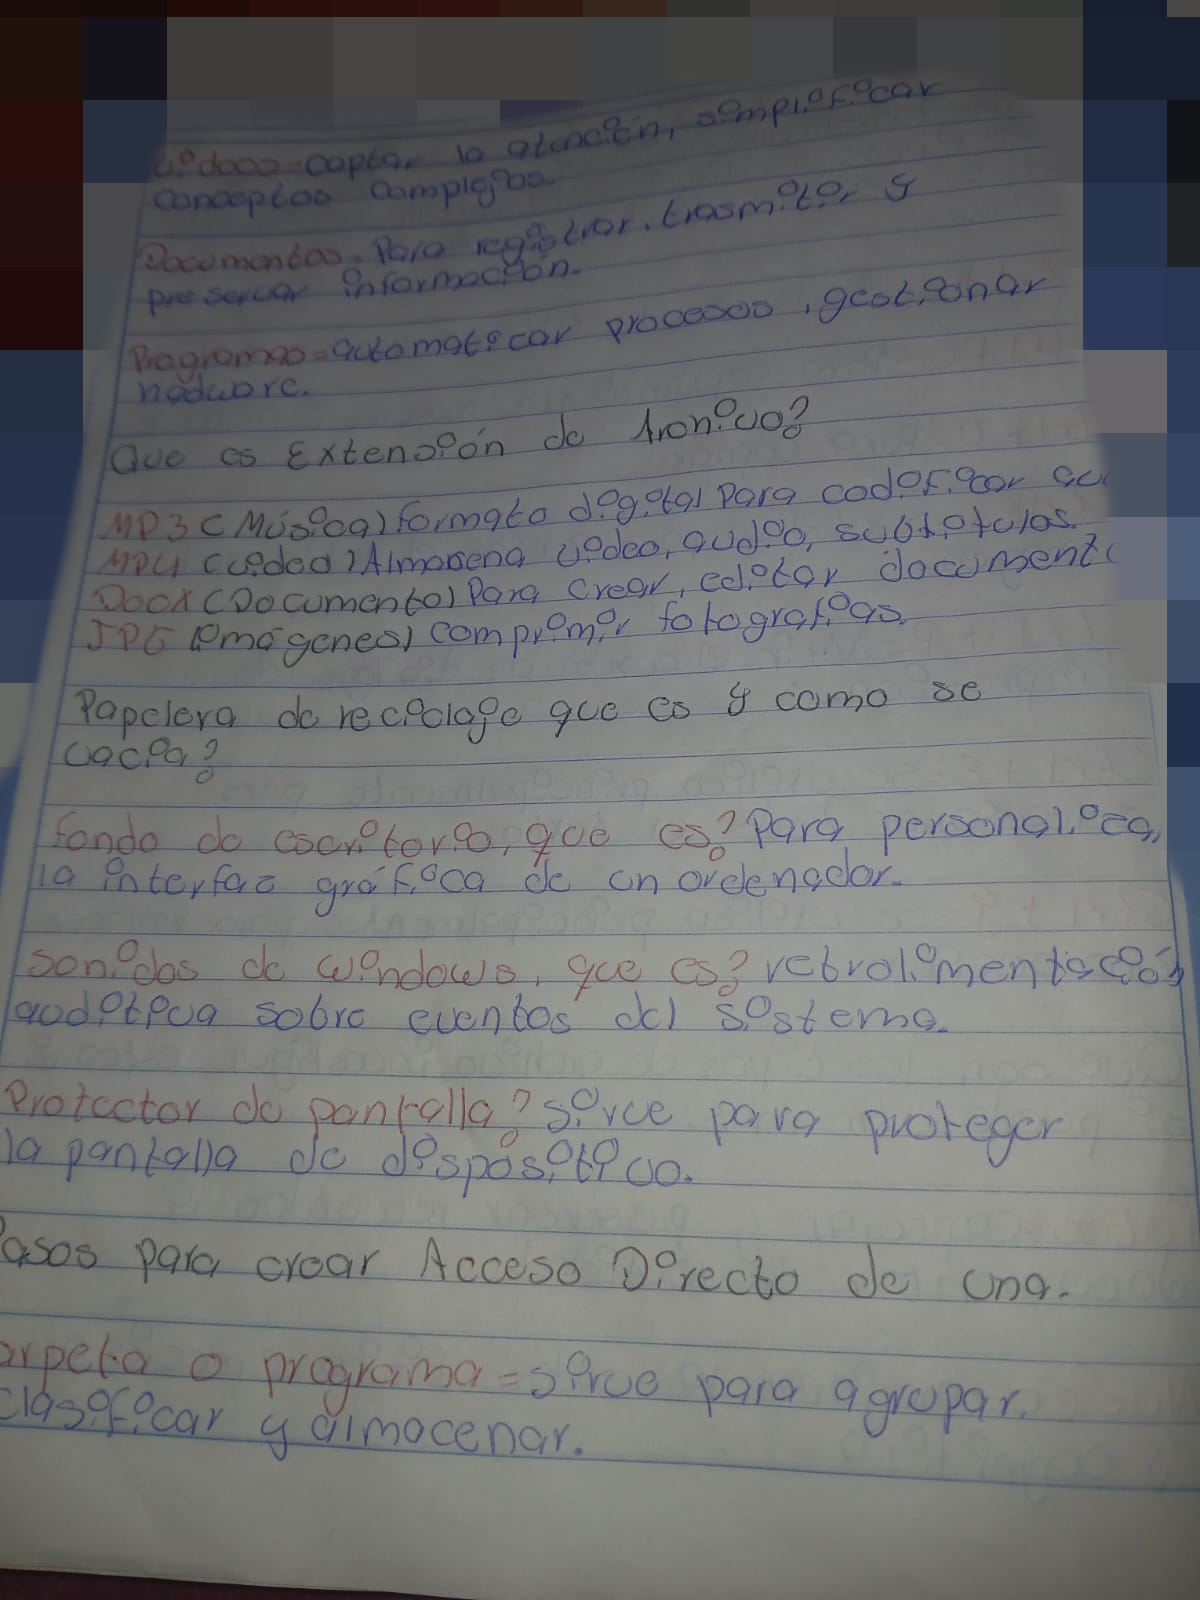 videos=captar la atención, simplificar
conceptos complejos.
Documentos= Para registrar. trasmitir y
preservar información.
Programas=automaticar procesos, gestionar
hadware.
Que es Extensión de Archivo?
MP3 (Música) formato digital Para codificar au
MP4 (video) Almasena video, audio, subtitulos.
Docx (Documento) Para crear, editar document
JPG (imágenes) comprimir fotografias.
Papelera de reciclaje que es y como se
vacia?
fondo de escritorio, que es? Para personalizar
la interfaz gráfica de un ordenador.
sonidos de windows, que es? retrolimentación
auditiva sobre eventos del sistema.
Protector de pantalla? sirve para proteger
la pantalla de dispositivo.
Pasos para crear Acceso Directo de una.
arpeta o programa=sirve para agrupar.
clasificar y almacenar.